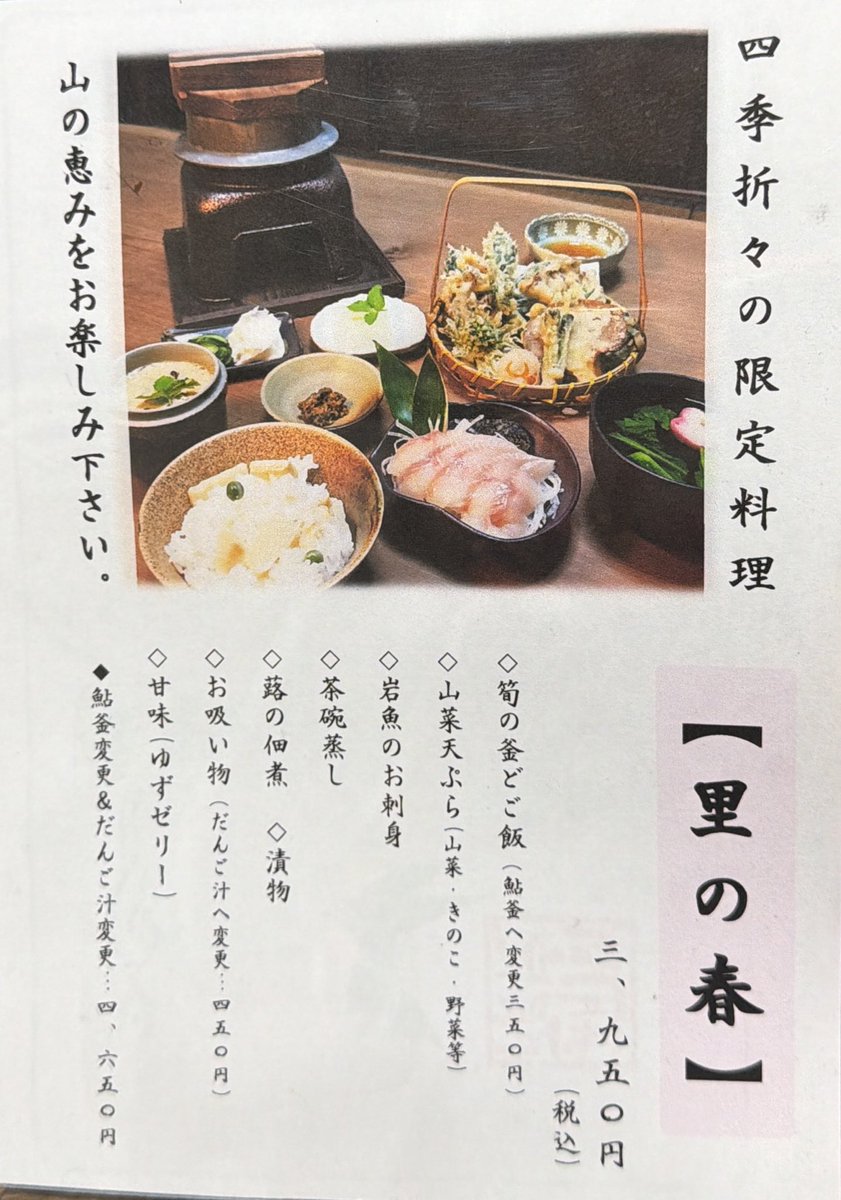 四季折々の限定料理
山の恵みをお楽しみ下さい。
【里の春】
三、九五〇円
(税込)
◇筍の釜どご飯(鮎釜へ変更三五〇円)
◇山菜天ぷら(山菜・きのこ・野菜等)
◇岩魚のお刺身
◇茶碗蒸し
◇蕗の佃煮　◇漬物
◇お吸い物(だんご汁へ変更…四五〇円)
◇甘味(ゆずゼリー)
◆鮎釜変更&だんご汁変更…四、六五〇円